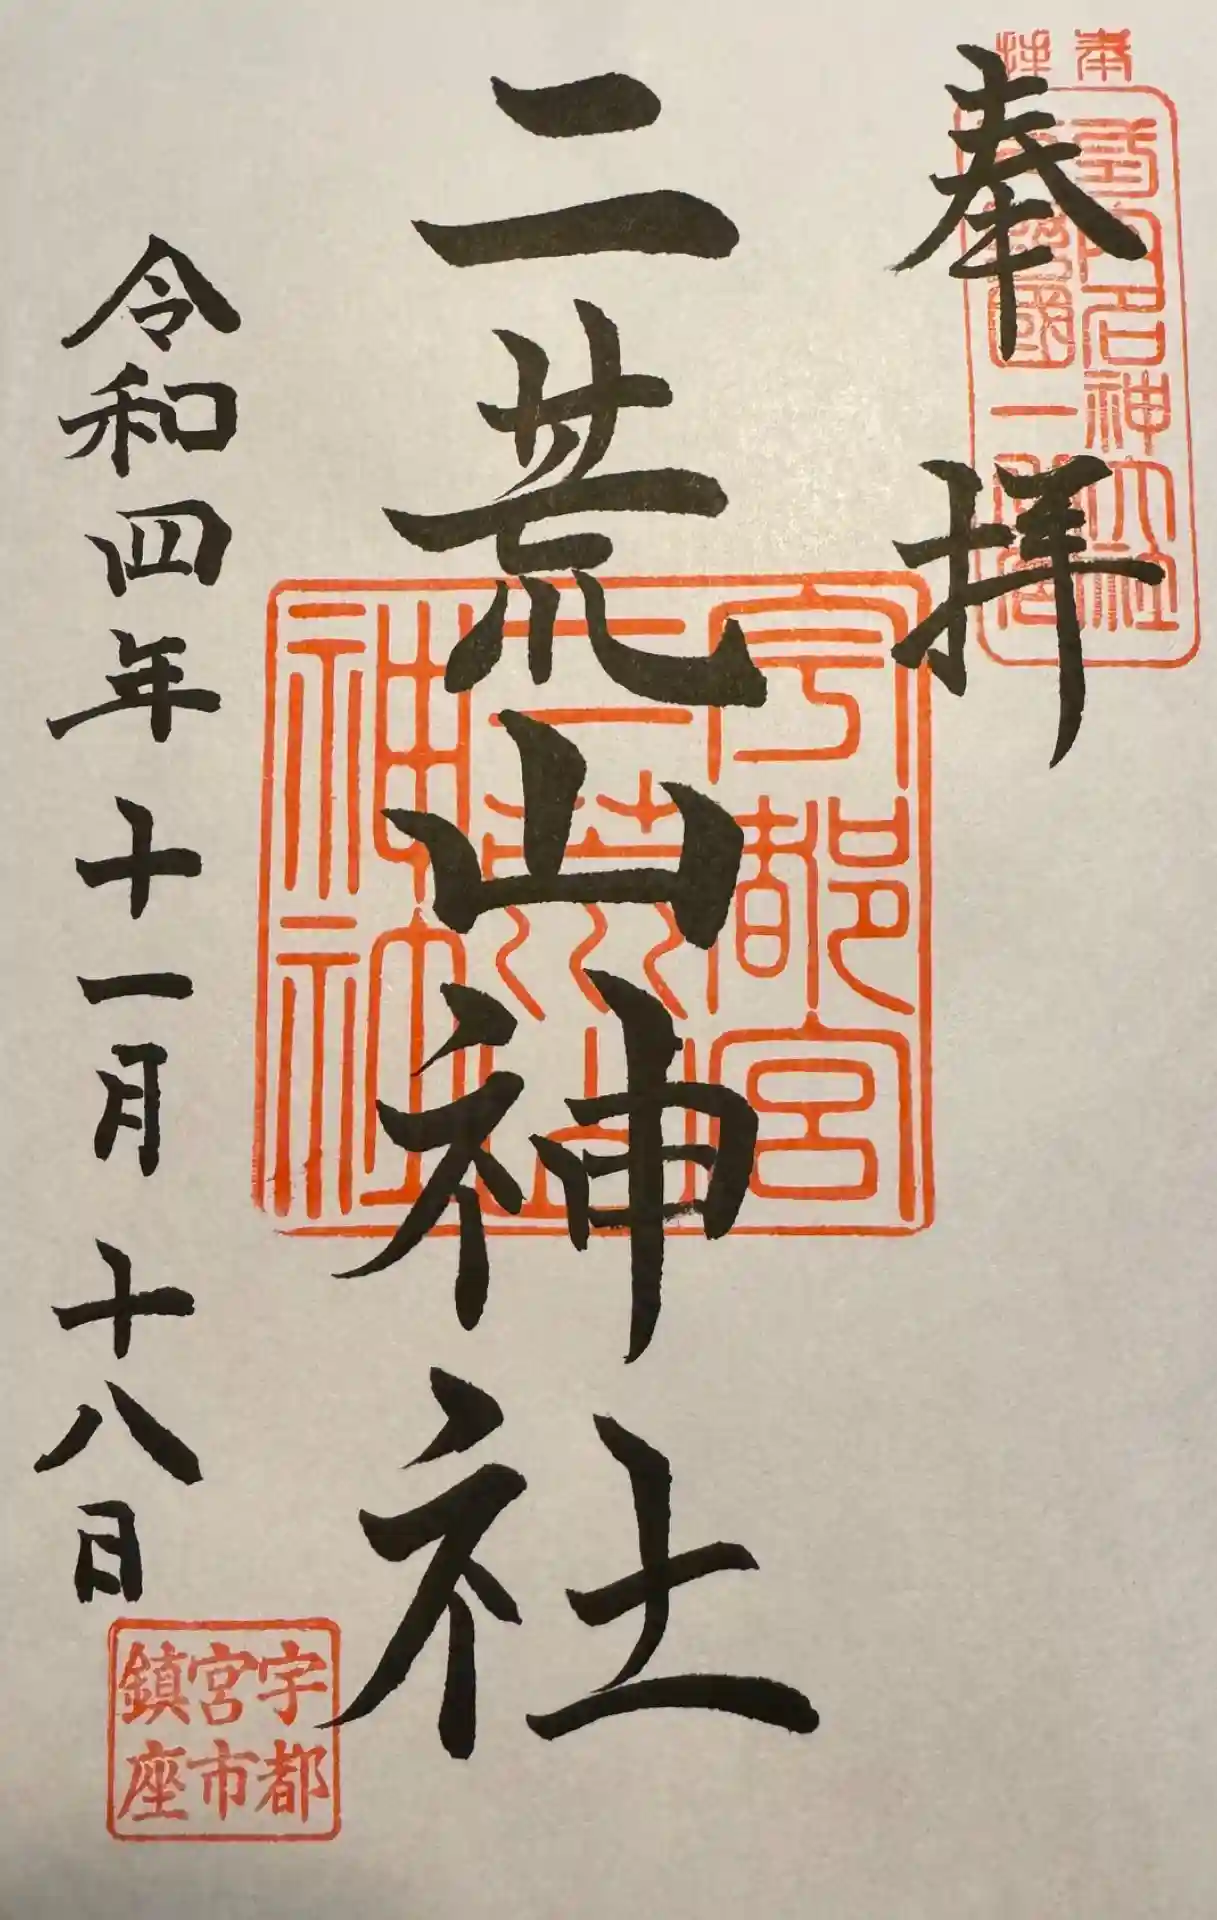 奉拝
奉拝
式内名神大社
下野國一之宮
二荒山神社
宇都宮
二荒山
神社
令和四年十一月十八日
宇都
宮市
鎮座